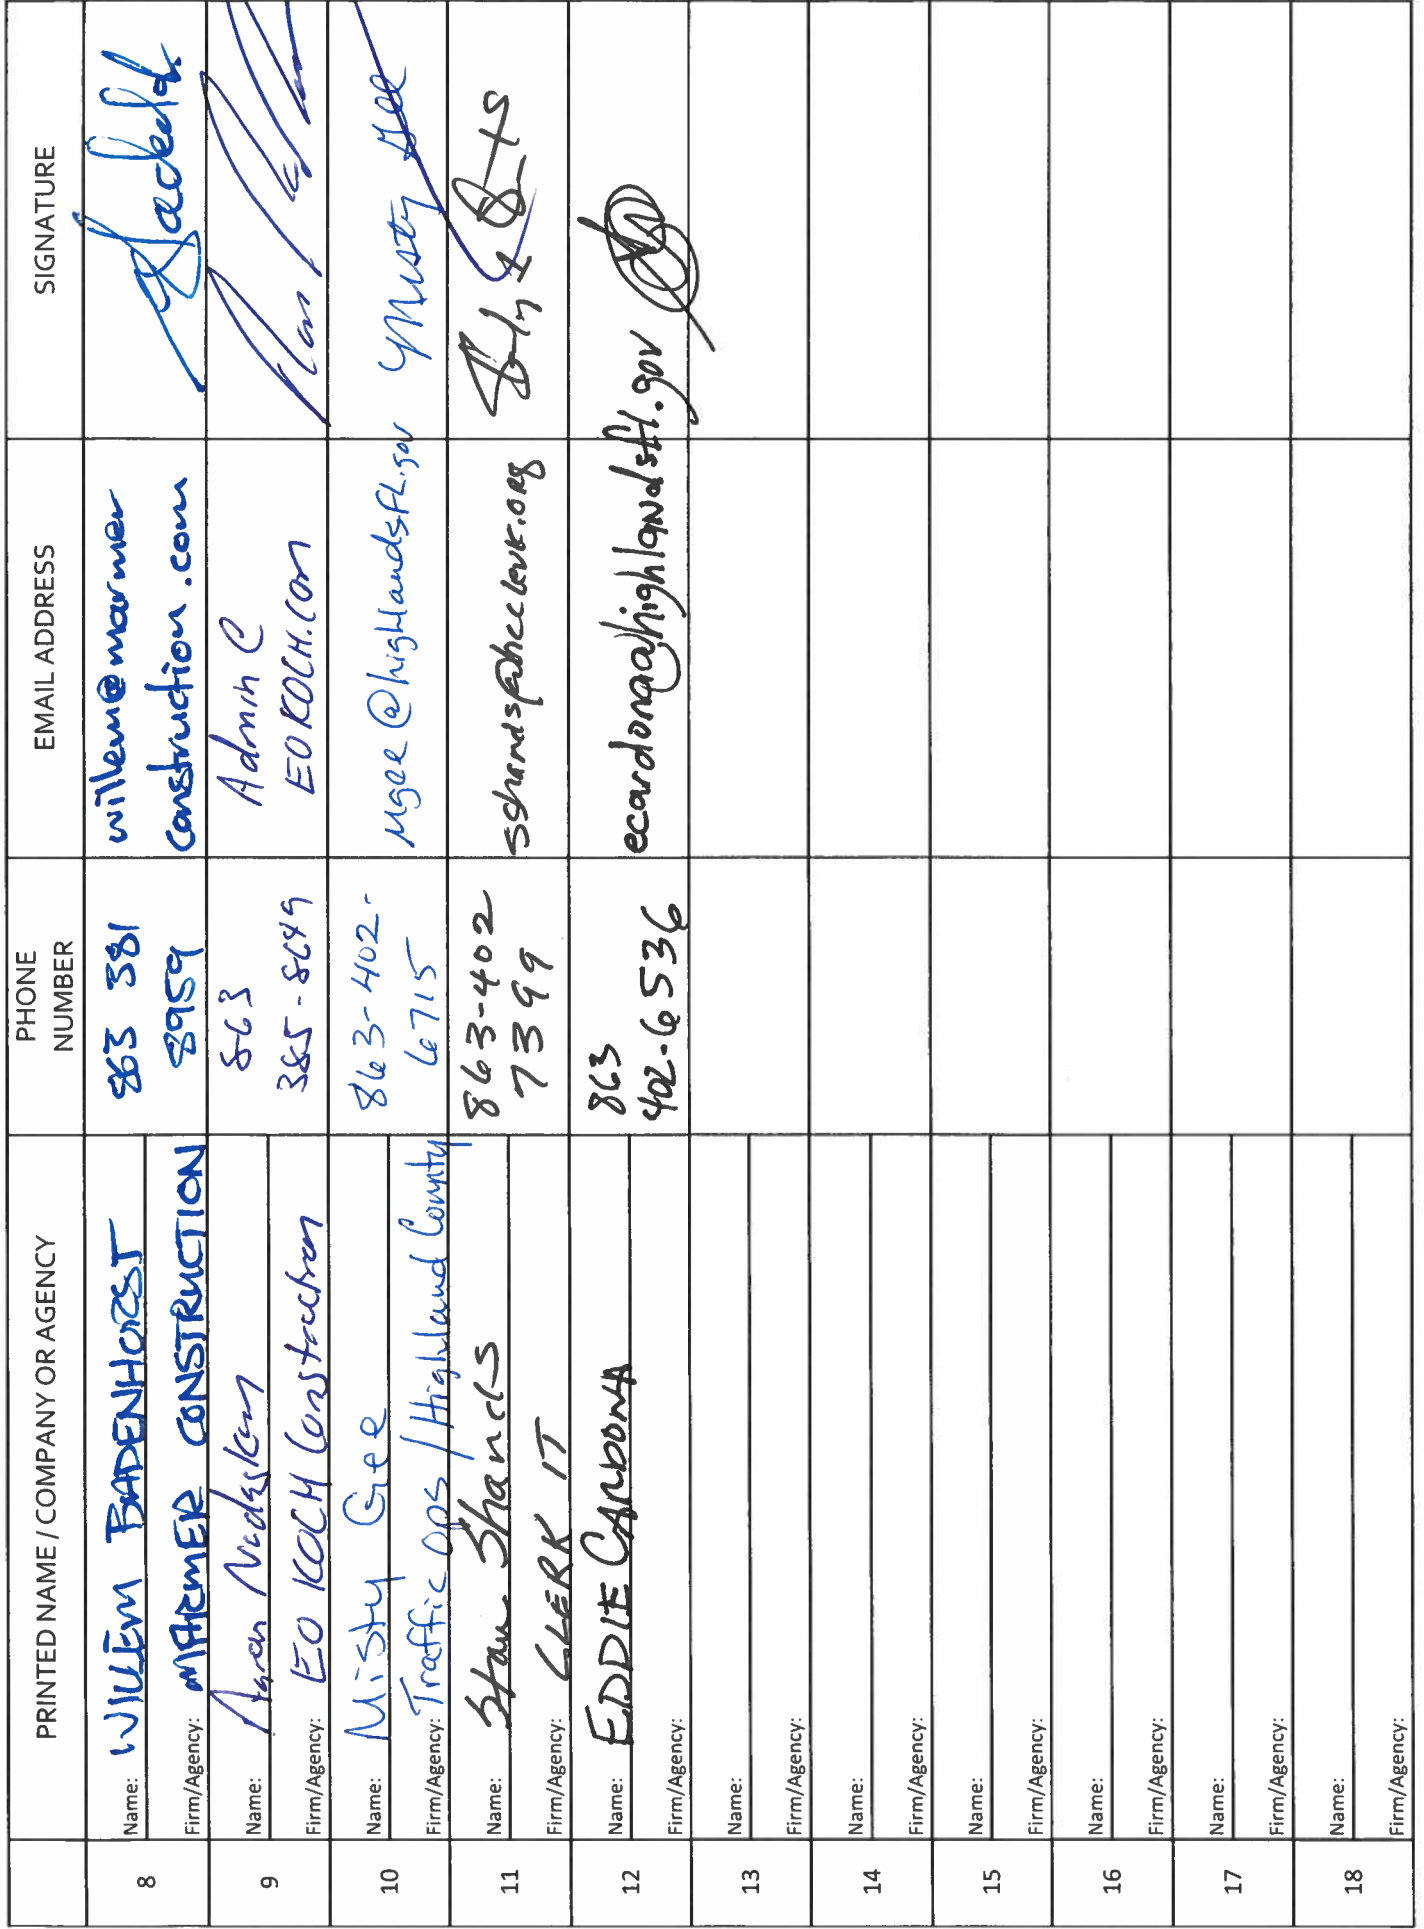 PRINTED NAME / COMPANY OR AGENCY
PHONE
NUMBER
EMAIL ADDRESS
SIGNATURE
8
Name: WILLEM BADENHORST
Firm/Agency: MARMER CONSTRUCTION
863 381
8959
willem@marmer
construction.com
9
Name: Aaron
Firm/Agency: EO KOCH Construction
863
385-8649
Admin @
EOKOCH.com
10
Name: Misty Gee
Firm/Agency: Traffic Ops / Highland County
863-402-
6715
Mgee@highlandsFL.gov
Misty Gee
11
Name: Stan Shands
Firm/Agency: CLERK IT
863-402
7399
sshands@hcclerk.org
12
Name: EDDIE CARDONA
Firm/Agency:
863
402-6536
ecardona@highlandsfl.gov
13
Name:
Firm/Agency:
14
Name:
Firm/Agency:
15
Name:
Firm/Agency:
16
Name:
Firm/Agency:
17
Name:
Firm/Agency:
18
Name:
Firm/Agency: